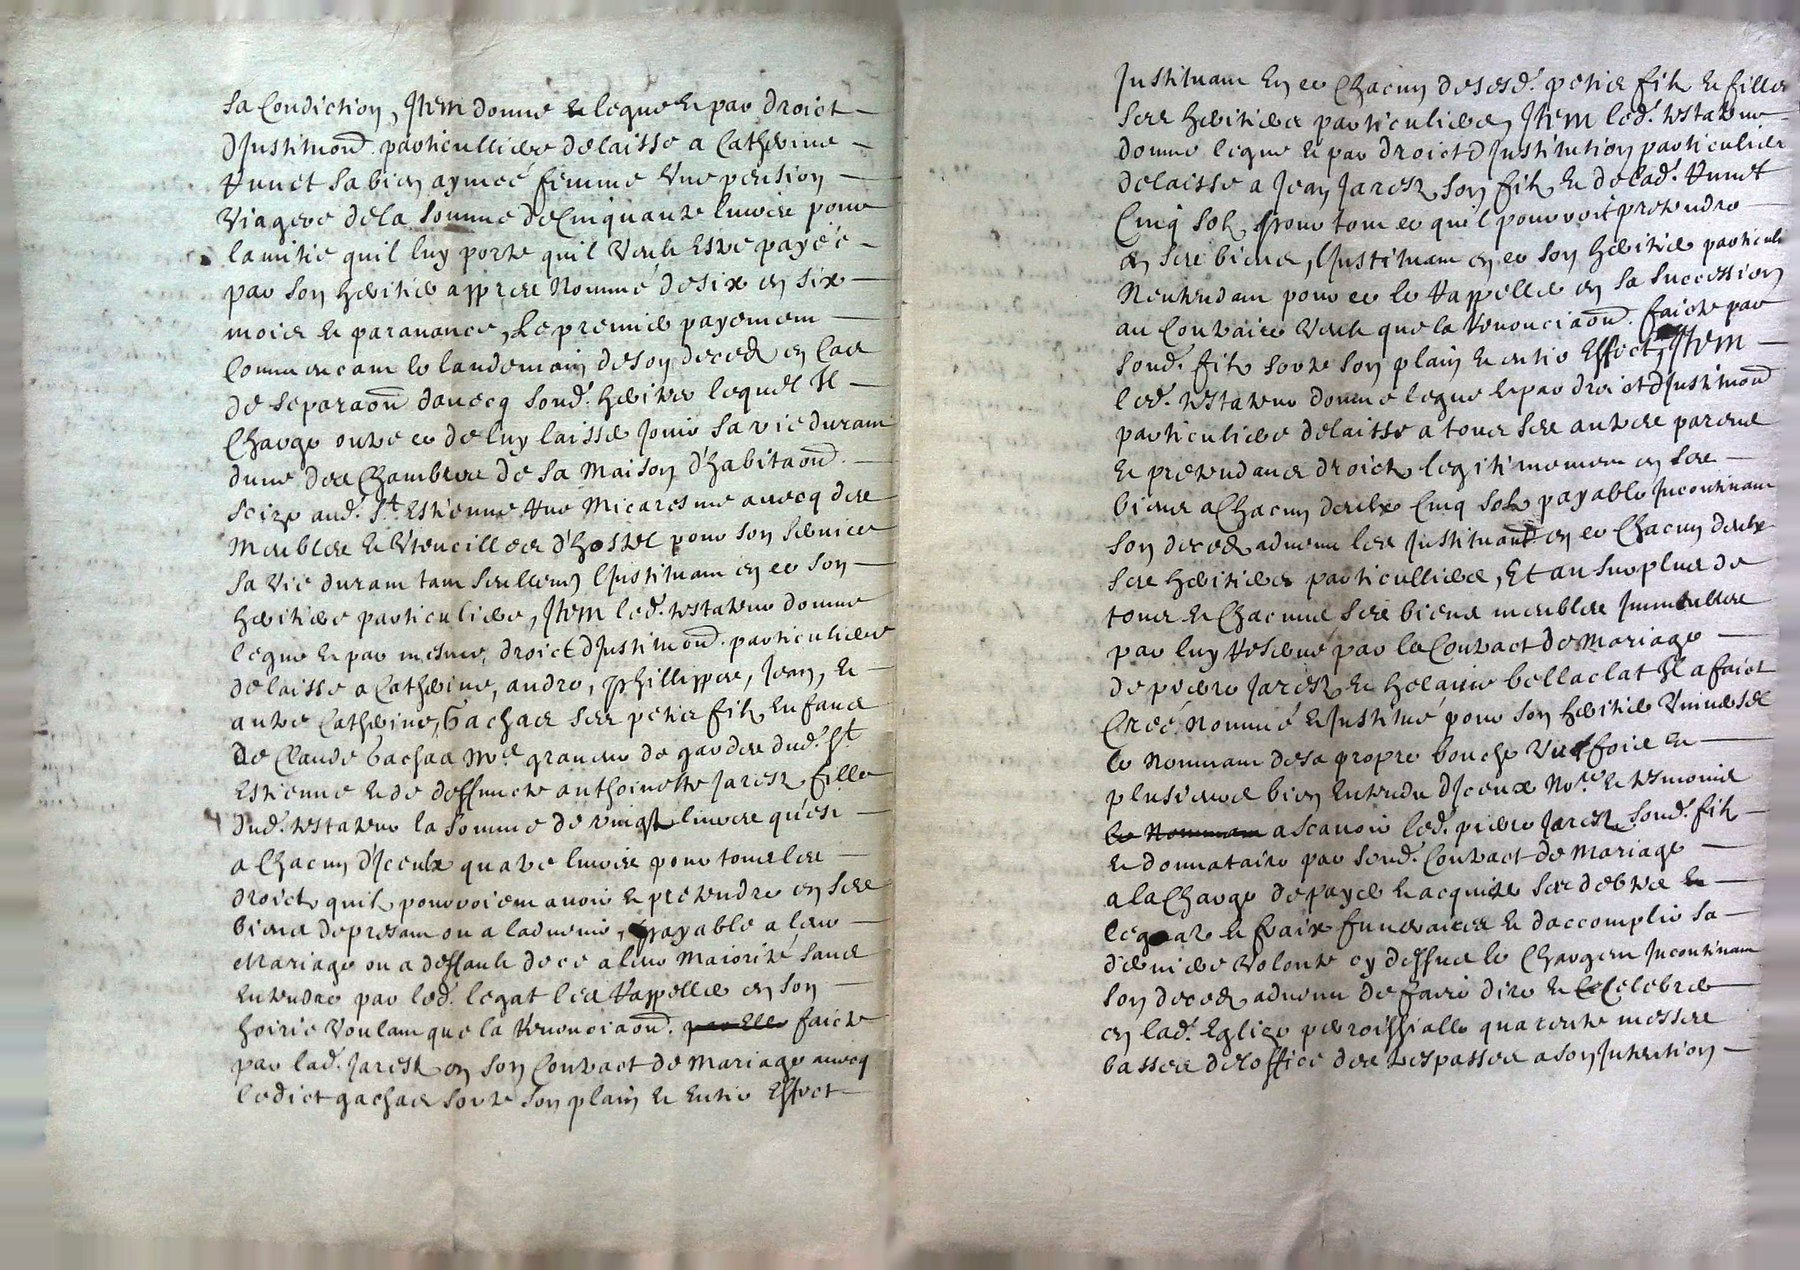 sa Condiction, Item donne et legue et par droict
d'Justituon particulliere delaisse a Catherine
Hunet sa bien aymeé femme une pension
viagere de la somme de Cinquante livres pour
lamitie quil luy porte quil veult estre payeé
par son heritier appres nommé de six en six
mois et par avance, le premier payement
Commencant le landemain de son deced en Cas
de separaon davecq sond. heritier lequel Il
Charge outre ce de luy laisser jouir sa vie durant
dune des Chambres de sa maison d'habitaon
seize aud. St Estienne Rue Micaresme avecq des
meubles et Vtencilles d'hostel pour son service
sa vie durant tant seullem Linstituant en ce son
heritiere particuliere, Item led. testateur donne
legue et par mesme droict d'Justituon particuliere
delaisse a Catherine, andre, Phillippes, Jean, et
autre Catherine, Gachas ses petis fils Enfans
De Claude Gachas Mre graveur de gardes dud. St
Estienne et de deffuncte anthoinette Jarest fille
dud. testateur la somme de vingt livres qu'est
a Chacun d'Jceulx quatre livres pour tous les
droicts quils pourroient avoir et pretendre en ses
biens de present ou a ladvenir, payable a leur
Mariage ou a deffault de ce a leur maiorité sans
Entendre par led. legat les Rappeller en son
hoirie voulant que la Renonciaon par Elle faicte
par lad. Jarest en son Contract de Mariage avecq
ledict gachas sorte son plain et Entier Effect
Justituant En ce Chacun de sesd. petis fils et filles
ses heritiers particuliers, Item led. testateur
donne legue et par droict d'Justitution particuliere
delaisse a Jean Jarest son fils et de lad. Hunet
Cinq sols pour tout ce quil pourroit pretendre
en ses biens, Linstituant en ce son heritier particuli
Nentendant pour ce le Rappeller en sa succession
au Contraire veult que la Renonciaon faicte par
sond. fils sorte son plain et entier Effect, Item
led. testateur donne legue et par droict d'Justituon
particuliere delaisse a tous ses autres parens
et pretendans droicts legitimement en ses
biens a Chacun deulx Cinq sols payable Incontinant
son deced advenu les Justituant en ce Chacun deulx
ses heritiers particulliers, Et au surplus de
tous et Chacuns ses biens meubles Immeubles
par luy Reserve par le Contract de Mariage
de pierre Jarest et helaine bellaclat Il a faict
Creé nommé et Justitué pour son heritier Vniversel
le nommant de sa propre bouche une fois et
plusieurs bien Entendu d'Jceux Nore et tesmoins
le Nommant a scavoir led. pierre Jarest sond. fils
et donnataire par sond. Contract de Mariage
a la Charge de payer et acquiter ses debtes et
legats et fraix funeraires et daccomplir sa
derniere volonte cy dessus le Chargeant Incontinant
son deced advenu de faire dire et celebrer
en lad. Eglize parroissialle quarente messes
basses de l'office des trespasses a son Jntention